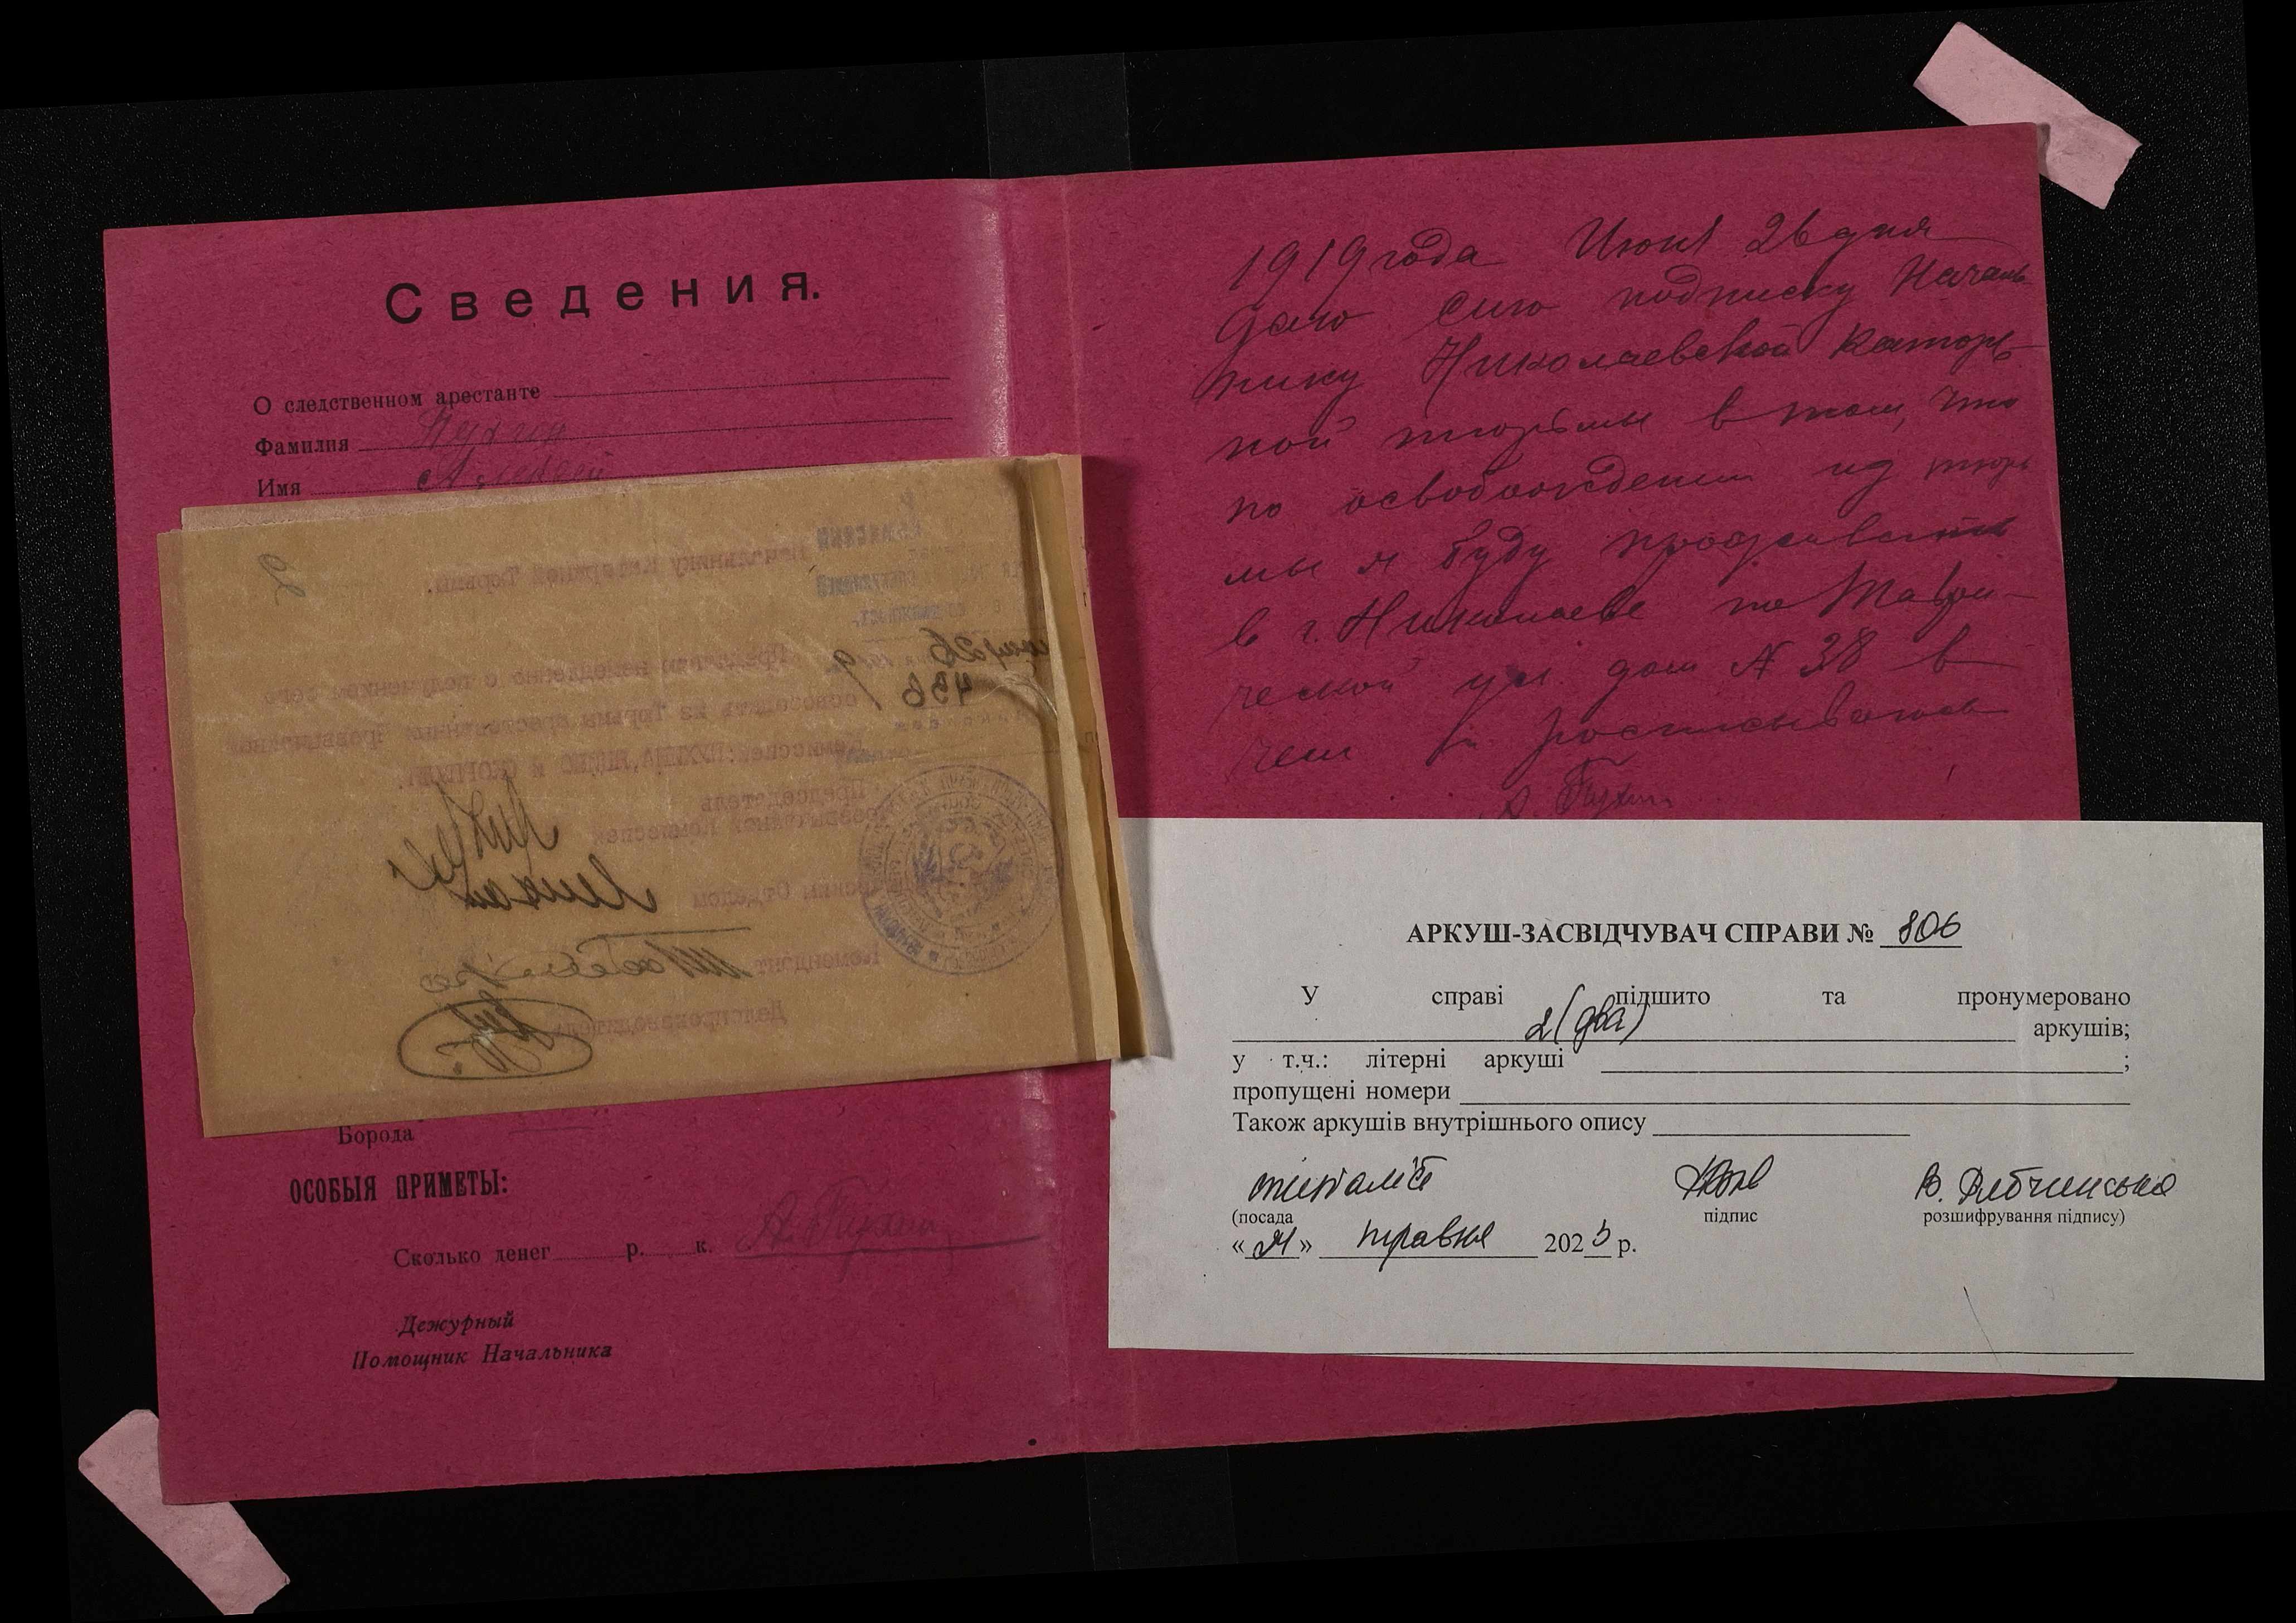 Сведения.
О следственном арестанте
Фамилия Пухин
Имя Алексей
2
Начальнику Каторжной Тюрьмы.
26
1919
456
Предлагаю немедленно с получением сего
освободить из Тюрьмы арестованных Чрезвычайной
Комиссией: ПУХИНА, и
Председатель
Чрезвычайной Комиссии
Отделом
Комендант
Делопроизводитель
Борода
ОСОБЫЯ ПРИМЕТЫ:
Сколько денег р. к. А. Пухин
Дежурный
Помощник Начальника
1919 года Июня 26 дня
Даю сию подписку Началь
нику Николаевской каторж-
ной тюрьмы в том, что
по освобождении из тюрь
мы я буду проживать
в г. Николаеве по Таври-
ческой ул. дом № 38 в
чем и росписываюсь
А. Пухин
АРКУШ-ЗАСВІДЧУВАЧ СПРАВИ № 806
У справі підшито та пронумеровано
2 (два) аркушів;
у т.ч.: літерні аркуші ;
пропущені номери
Також аркушів внутрішнього опису
спеціаліст В. Рябчинська
(посада підпис розшифрування підпису)
« » травня 2025 р.